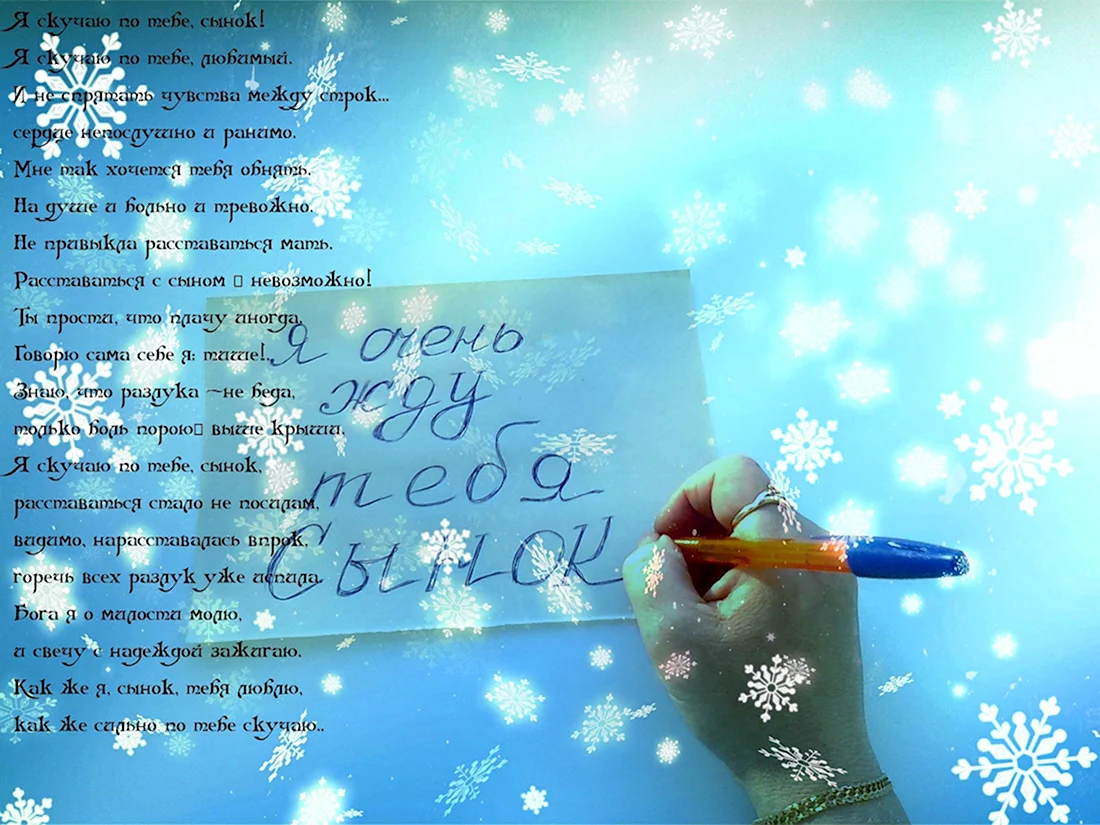 Я скучаю по тебе, сынок!
Я скучаю по тебе, любимый.
И не спрятать чувства между строк...
сердце непослушно и ранимо.
Мне так хочется тебя обнять.
На душе и больно и тревожно.
Не привыкла расставаться мать.
Расставаться с сыном □ невозможно!
Ты прости, что плачу иногда,
Говорю сама себе я: тише!..
Знаю, что разлука –не беда,
только боль порою□ выше крыши.
Я скучаю по тебе, сынок,
расставаться стало не посилам,
видимо, нарасставалась впрок,
горечь всех разлук уже испила.
Бога я о милости молю,
и свечу с надеждой зажигаю.
Как же я, сынок, тебя люблю,
как же сильно по тебе скучаю..
Я очень
жду
тебя
Сынок